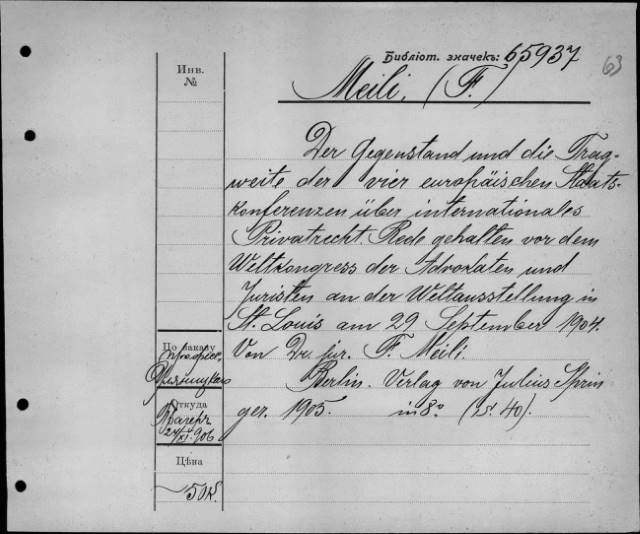 Библіот. значекъ: 65937
63
Инв.
№
Meili, (F.)
Der Gegenstand und die Trag-
weite der vier europäischen Staats-
konferenzen über internationales
Privatrecht. Rede gehalten vor dem
Weltkongress der Advokaten und
Juristen an der Weltausstellung in
St. Louis am 29 September 1904.
Von Dr. jur. F. Meili.
Berlin. Verlag von Julius Sprin
ger. 1905. in 8° (S. 40).
По заказу
професс.
Откуда
906
Цѣна
50 к.